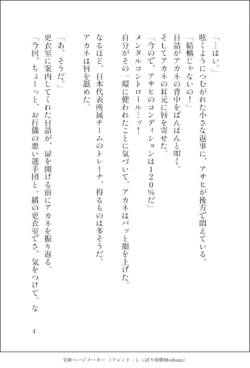 「…はい。」
呟くようにつむがれた小さな返事に、アサヒが後方で悶えている。
「結構じゃないの！」
日詰がアカネの背中をばんばんと叩く。
アカネの耳元に唇を寄せた。
「今ので、アサヒのコンディションは120％だ」
メンタルコントロール…ッ！
自分がその一環に使われたことに気づいて、アカネはバッと顔を上げた。
なるほど、日本代表所属チームのトレーナー、得るものは多そうだ。
アカネは唇を舐めた。
「あ、そうだ。」
更衣室に案内してくれた日詰が、扉を開ける前にアカネを振り返る。
「今回、ちょーっと、お行儀の悪い選手団と一緒の更衣室でさ、気をつけて。な
4
文庫ページメーカー（フォント：しっぽり明朝Medium）